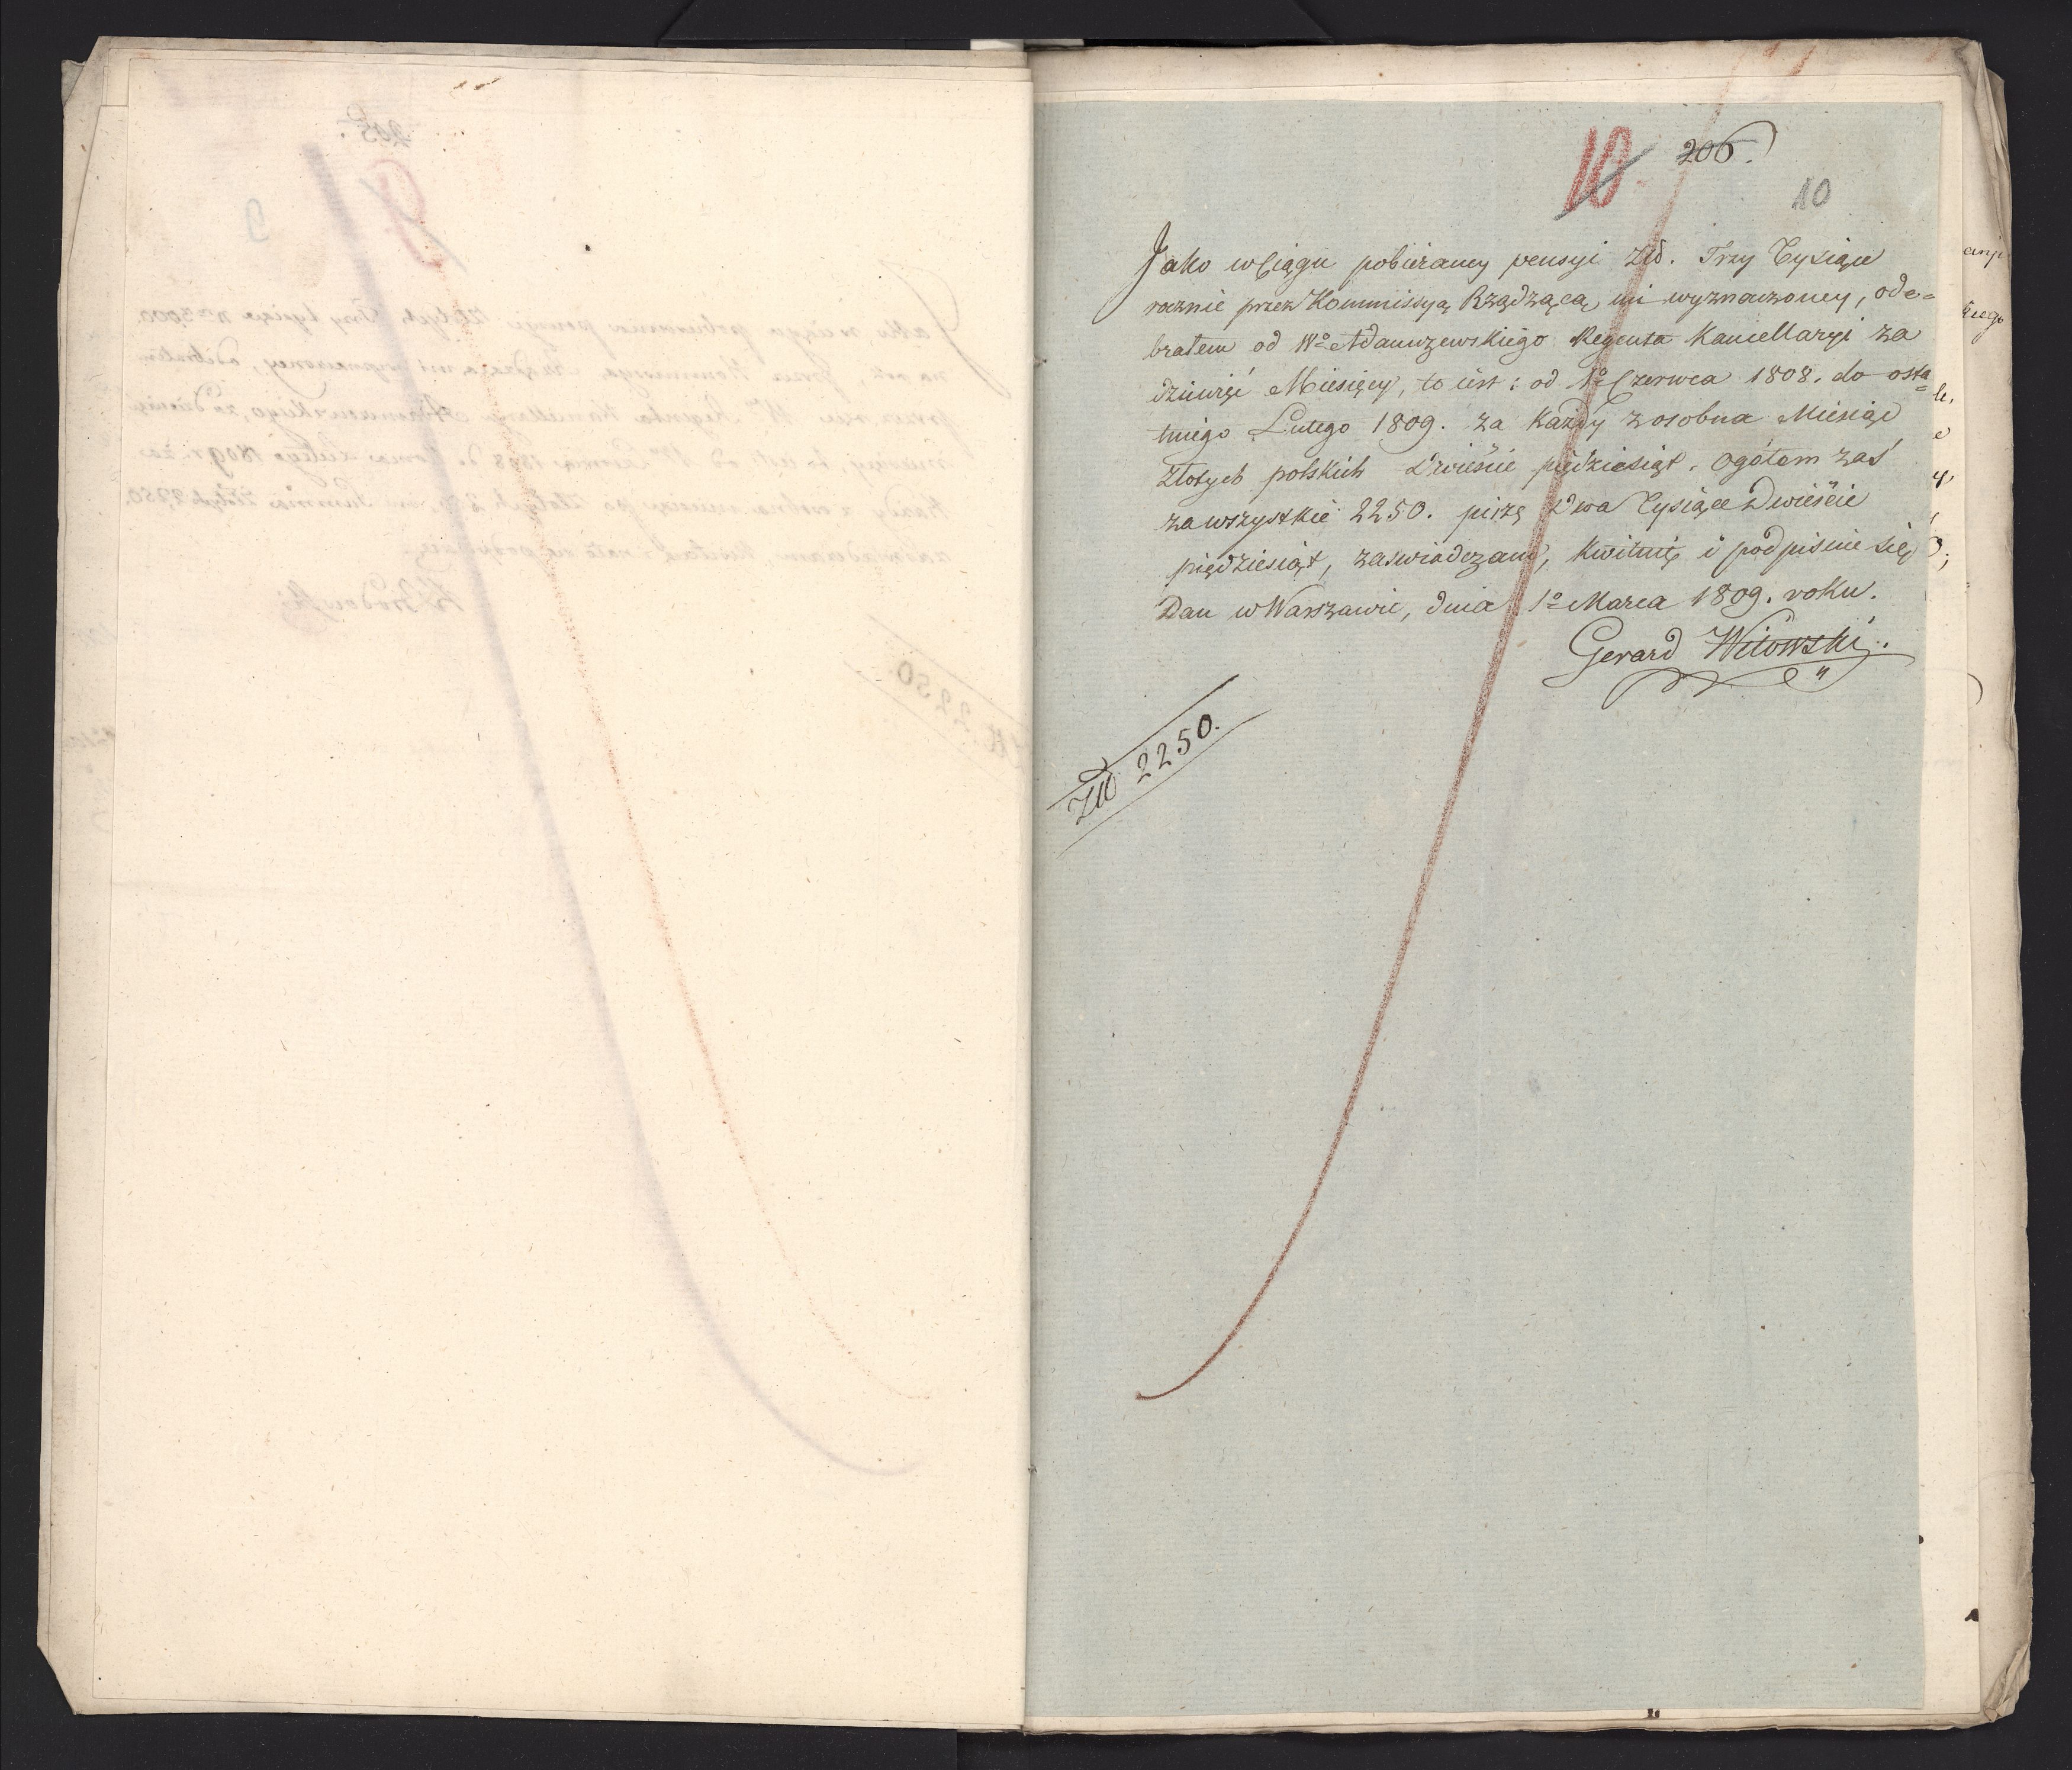 10. 206.
10
Jako w Ciągu pobieraney pensyi Złł. Trzy Tysiące
rocznie przez Kommissyą Rządzącą mi wyznaczoney, ode=
brałem od Wo Adamczewskiego Regenta Kancellaryi za
dziewięć Miesięcy, to iest: od 1o Czerwca 1808. do osta=
tniego Lutego 1809. za Każdy z osobna Miesiąc
złotych polskich Dwieście pięćdziesiąt. Ogółem zaś
za wszystkie 2250. piszę Dwa Tysiące Dwieście
pięćdziesiąt, zaświadczam, Kwituię i podpisuie się
Dan w Warszawie, dnia 1o Marca 1809. roku.
Gerard Witowski.
Złł 2250.